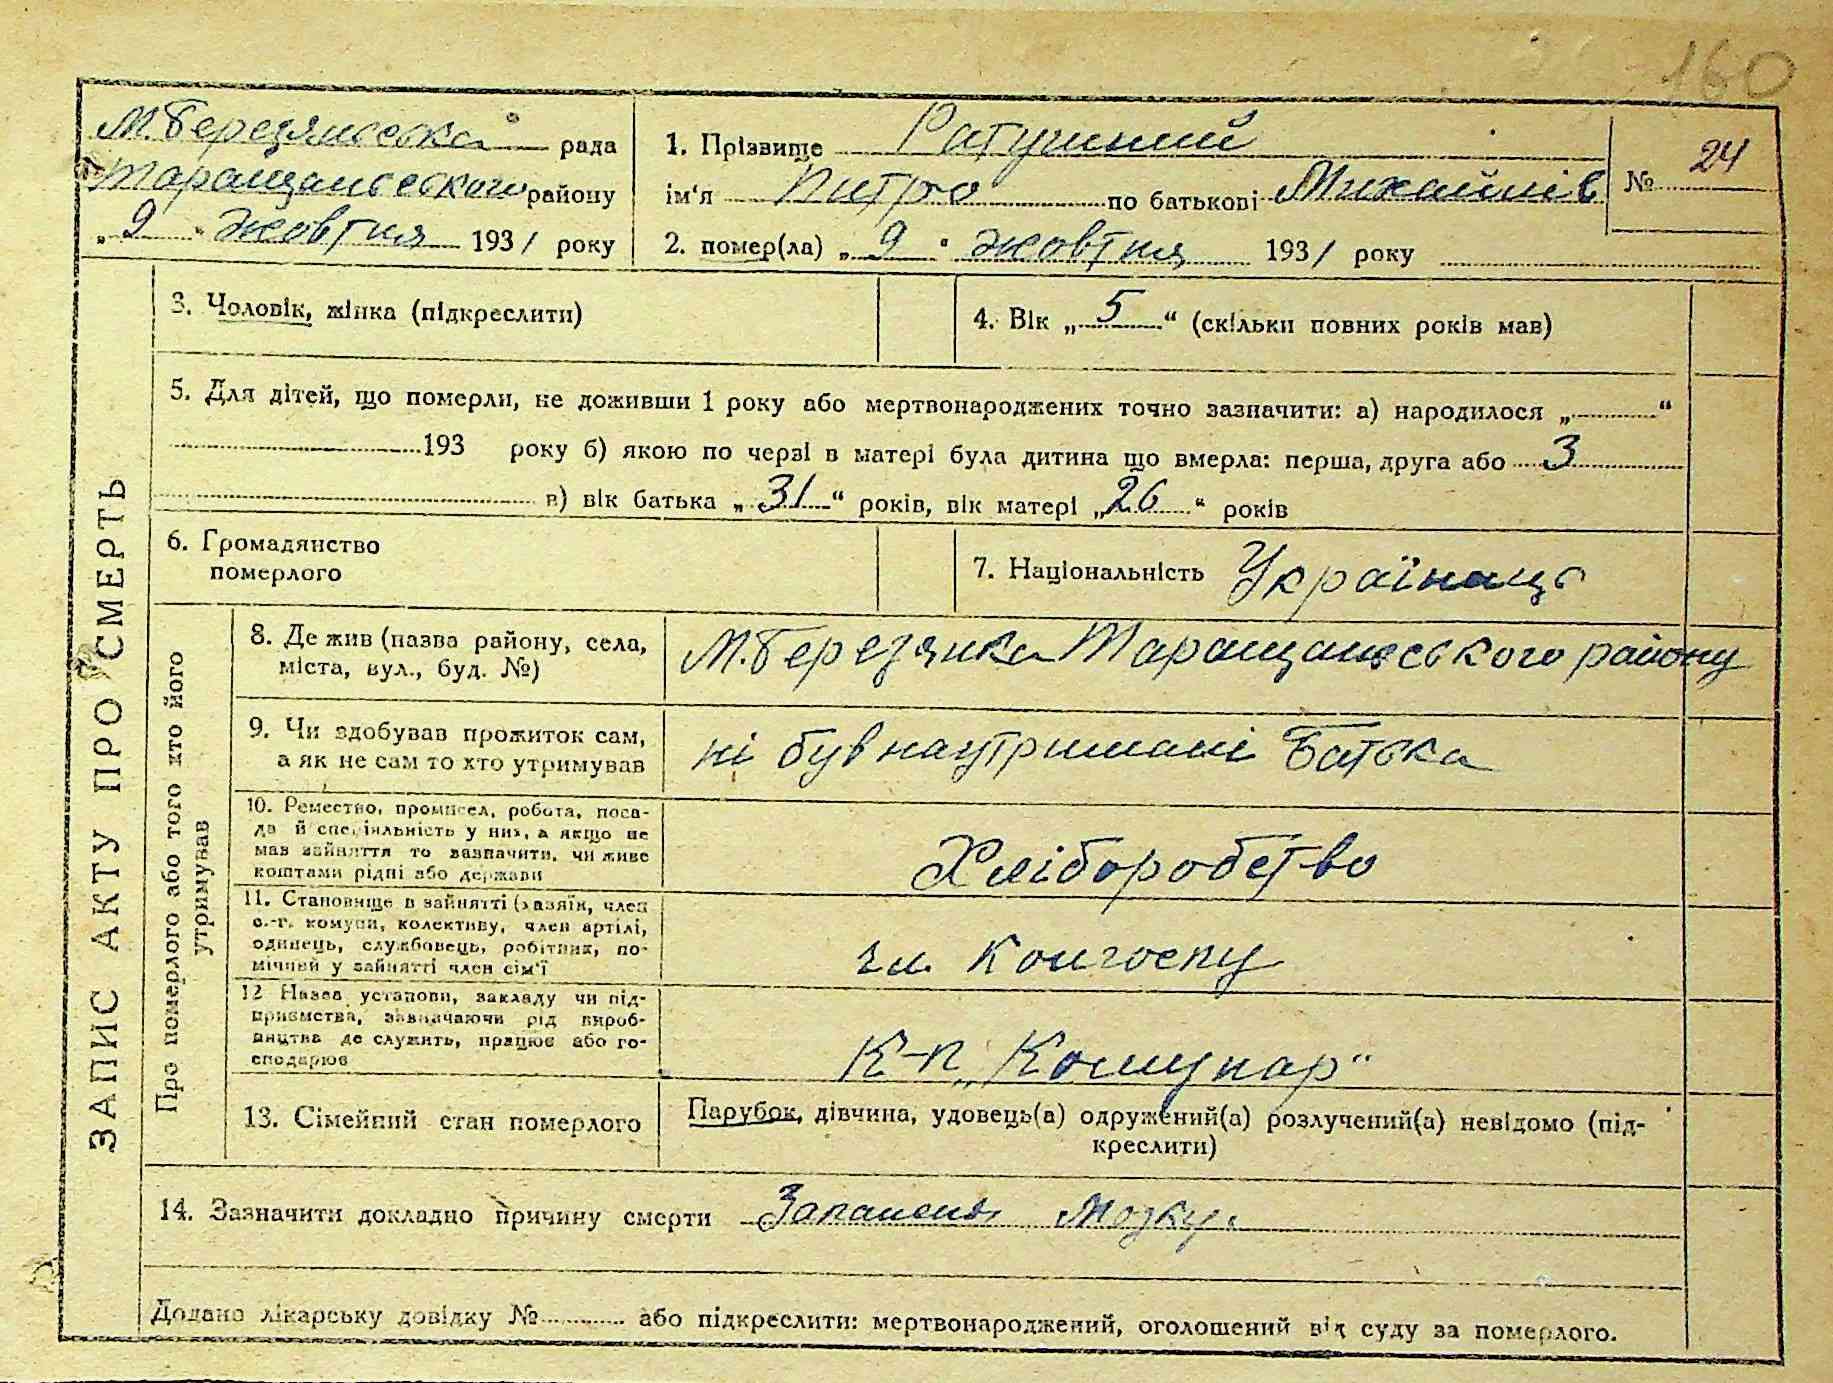 160
М.Березянська рада
Таращанського району
„ 9 " жовтня 1931 року
1. Прізвище Ратушний
ім'я Питро по батькові Михайлів
2. помер(ла) „ 9 " жовтня 1931 року
№ 24
ЗАПИС АКТУ ПРО СМЕРТЬ
3. Чоловік, жінка (підкреслити)
4. Вік „ 5 “ (скільки повних років мав)
5. Для дітей, що померли, не доживши 1 року або мертвонароджених точно зазначити: а) народилося „ “
193 року б) якою по черзі в матері була дитина що вмерла: перша, друга або 3
в) вік батька „ 31 “ років, вік матері „ 26 “ років
6. Громадянство
померлого
7. Національність Українець
Про померлого або того хто його
утримував
8. Де жив (назва району, села,
міста, вул., буд. №)
М.Березянка Таращанського району
9. Чи здобував прожиток сам,
а як не сам то хто утримував
ні був на утримані Батька
10. Ремество, промисел, робота, поса-
да й спеціяльність у них, а якщо не
мав зайняття то зазначити, чи живе
коштами рідні або держави
Хліборобство
11. Становище в зайнятті (хазяїн, член
с.-г. комуни, колективу, член артілі,
одинець, службовець, робітник, по-
мічний у зайнятті член сім'ї
чл. Колгоспу
12 Назва установи, закладу чи під-
приємства, зазначаючи рід вироб-
ництва де служить, працює або го-
сподарює
К-п „Комунар"
13. Сімейний стан померлого
Парубок, дівчина, удовець(а) одружений(а) розлучений(а) невідомо (під-
креслити)
14. Зазначити докладно причину смерти Запаленя Мозку.
Додано лікарську довідку № або підкреслити: мертвонароджений, оголошений від суду за померлого.